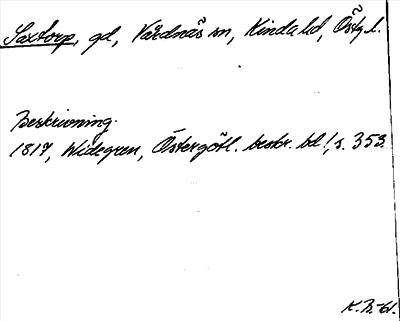 Saxtorp, gd, Vårdnäs sn, Kinda hd, Östg l.
Beskrivning.
1817, Widegren, Östergötl. beskr. bd 1, s. 353.
K.B.-61.